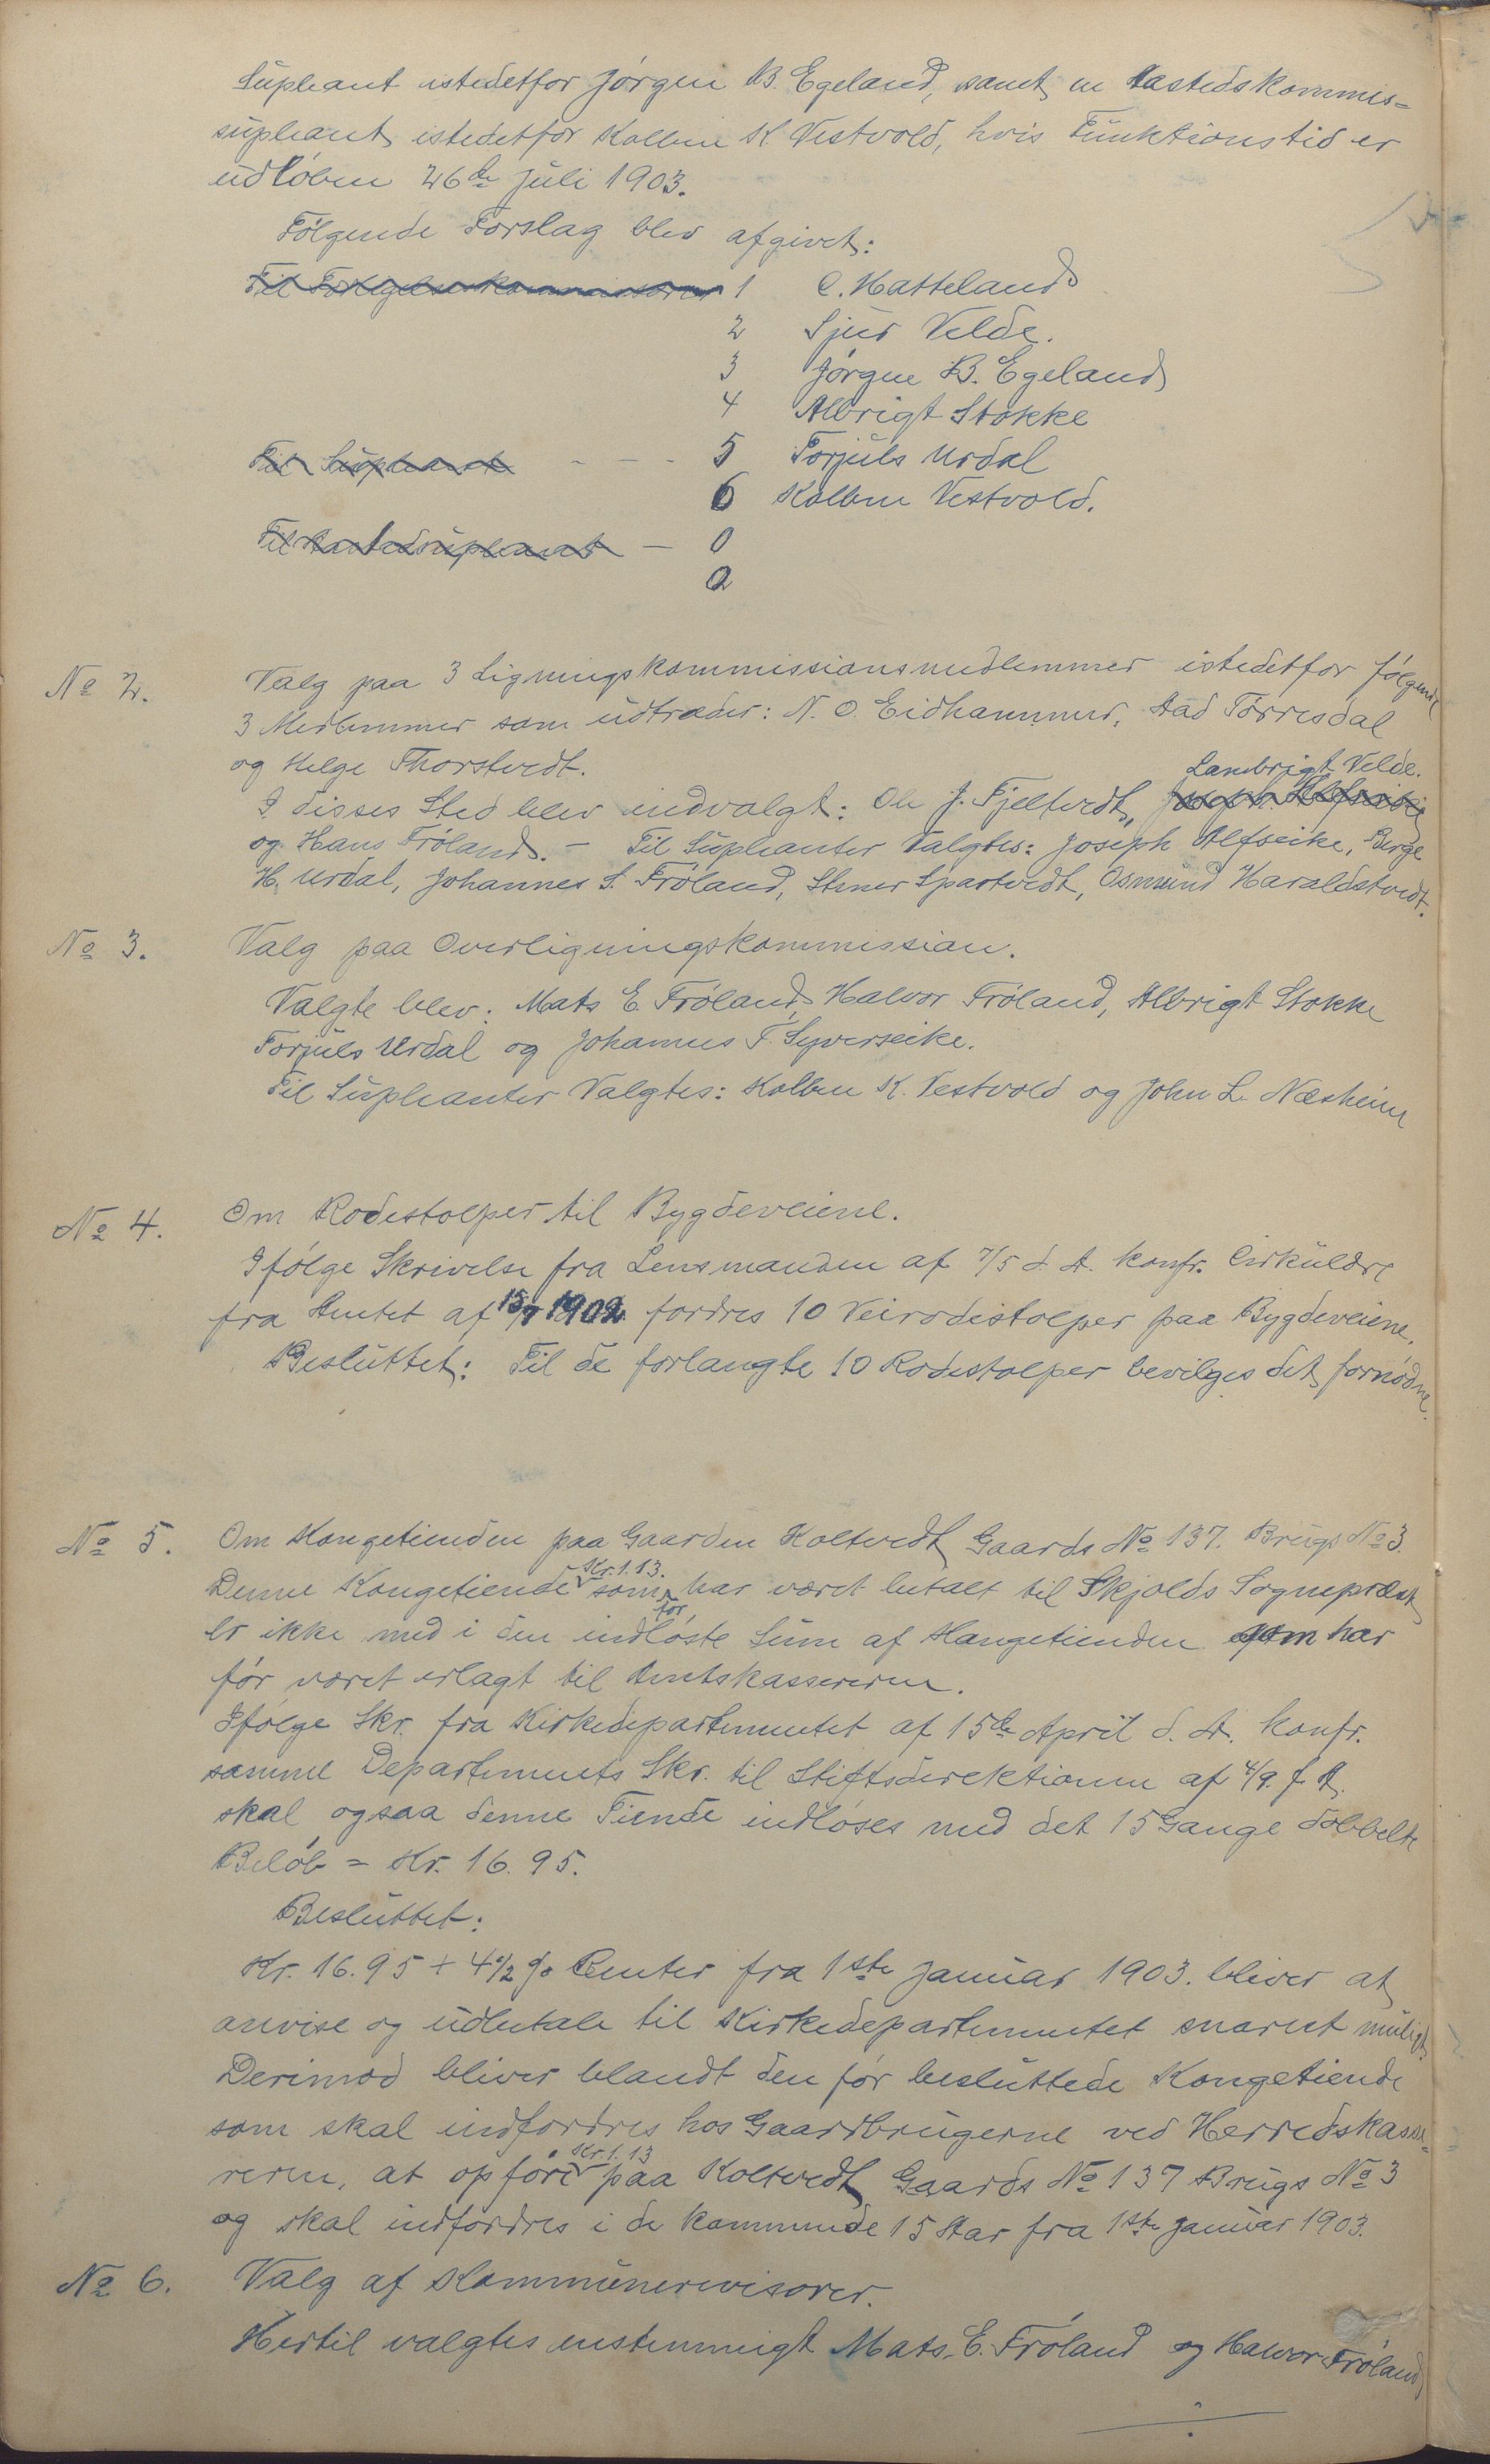 Supleant istedetfor Jørgen B. Egeland, samt en Aastedskommis=
supleant istedetfor Kolben K. Vestvold, hvis Funktionstid er
udløben 26de Juli 1903.
Følgende Forslag blev afgivet:
1 C. Hatteland
2 Sjur Velde.
3 Jørgen B. Egeland
4 Albrigt Stokke
Til Supleant - - - 5 Torjuls Urdal
6 Kolben Vestvold.
Til Aastedsupleant — 0
0
No 2. Valg paa 3 Ligningskommissionsmedlemmer istedetfor følgende
3 Medlemmer som udtræder: N. O. Eidhammer, Aad Tørresdal
og Helge Thorstvedt.
Lambrigt Velde.
I disses Sted blev indvalgt: Ole J. Fjeltvedt, Joseph Alfseike
og Hans Frøland. — Til Supleanter Valgtes: Joseph Alfseike, Berge
H. Urdal, Johannes S. Frøland, Stener Spartvedt, Osmund Haraldstvedt.
No 3. Valg paa Overligningskommission.
Valgte blev: Mats E. Frøland, Halvor Frøland, Albrigt Stokke
Torjuls Urdal og Johannes T. Syverseike.
Til Supleanter Valgtes: Kolben K. Vestvold og John L. Næsheim
No 4. Om Rodestolper til Bygdeveiene.
Ifølge Skrivelse fra Lensmanden af 7/5 d. A. konfr. Cirkulære
fra Amtet af 15/7 1902 fordres 10 Veirodestolper paa Bygdeveiene.
Besluttet: Til de forlangte 10 Rodestolper bevilges det fornødne.
No 5. Om Kongetienden paa Gaarden Koltvedt Gaards No 137. Brugs No 3.
Kr. 1.13.
Denne Kongetiende som har været betalt til Skjolds Sogneprest
før
er ikke med i den indløste Sum af Kongetienden som har
før været erlagt til Amtskassereren.
Ifølge Skr. fra Kirkedepartementet af 15de April d. A. konfr.
samme Departements Skr. til Stiftsdirektionen af 4/9 f. A.
skal ogsaa denne Tiende indløses med det 15 Gange dobbelte
Beløb = Kr. 16.95.
Besluttet:
Kr. 16.95 + 4 1/2 % Renter fra 1ste Januar 1903. bliver at
anvise og udbetale til Kirkedepartementet snarest muligt
Derimod bliver blandt den før besluttede Kongetiende
som skal indfordres hos Gaardbrugerne ved Herredskasse=
Kr. 1.13
reren, at opføre paa Koltvedt Gaards No 137 Brugs No 3
og skal indfordres i de kommende 15 Aar fra 1ste Januar 1903.
No 6. Valg af Kommunerevisorer.
Hertil valgtes enstemmigt Mats E. Frøland og Halvor Frøland